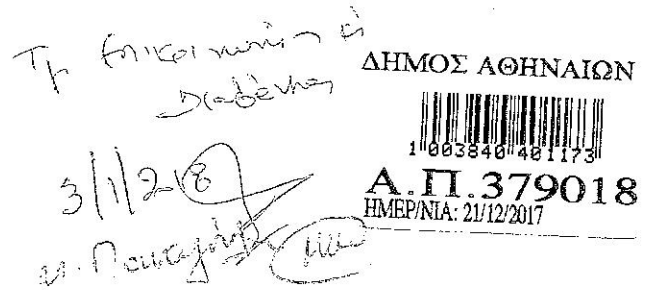 Τμ Επικοινωνίας κι
Διαβ
3/1/2018
ΔΗΜΟΣ ΑΘΗΝΑΙΩΝ
1 003840 401173
Α.Π.379018
ΗΜΕΡ/ΝΙΑ: 21/12/2017